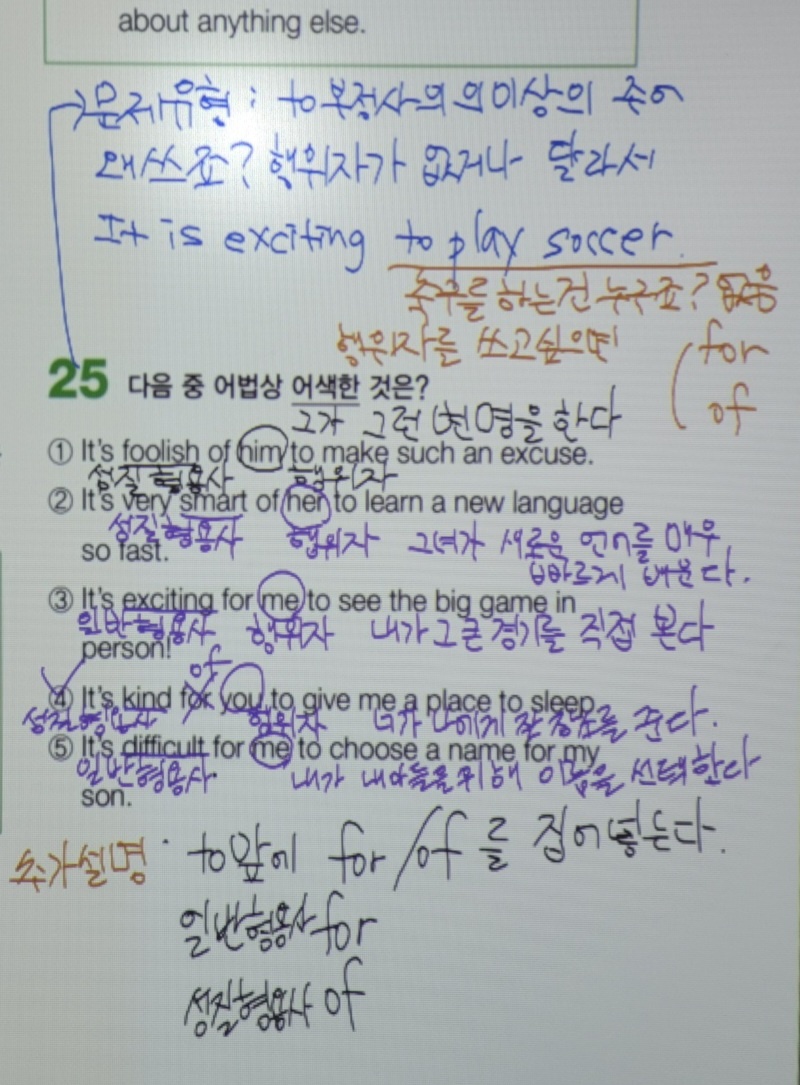 about anything else.
문제유형 : to부정사의 의미상의 주어
왜쓰죠? 행위자가 없거나 달라서
It is exciting to play soccer.
축구를 하는건 누구죠? 없음
행위자를 쓰고싶으면 ( for
of
25 다음 중 어법상 어색한 것은?
그가 그런 변명을 한다
① It's foolish of him to make such an excuse.
성질형용사 행위자
② It's very smart of her to learn a new language
성질형용사 행위자 그녀가 새로운 언어를 매우
so fast.
빠르게 배운다.
③ It's exciting for me to see the big game in
일반형용사 행위자 내가 그 큰 경기를 직접 본다
person!
of
④ It's kind for you to give me a place to sleep.
성질형용사 행위자 너가 나에게 잘 장소를 준다.
⑤ It's difficult for me to choose a name for my
일반형용사 내가 내아들을 위해 이름을 선택한다
son.
추가설명 : to앞에 for/of 를 집어넣는다.
일반형용사 for
성질형용사 of